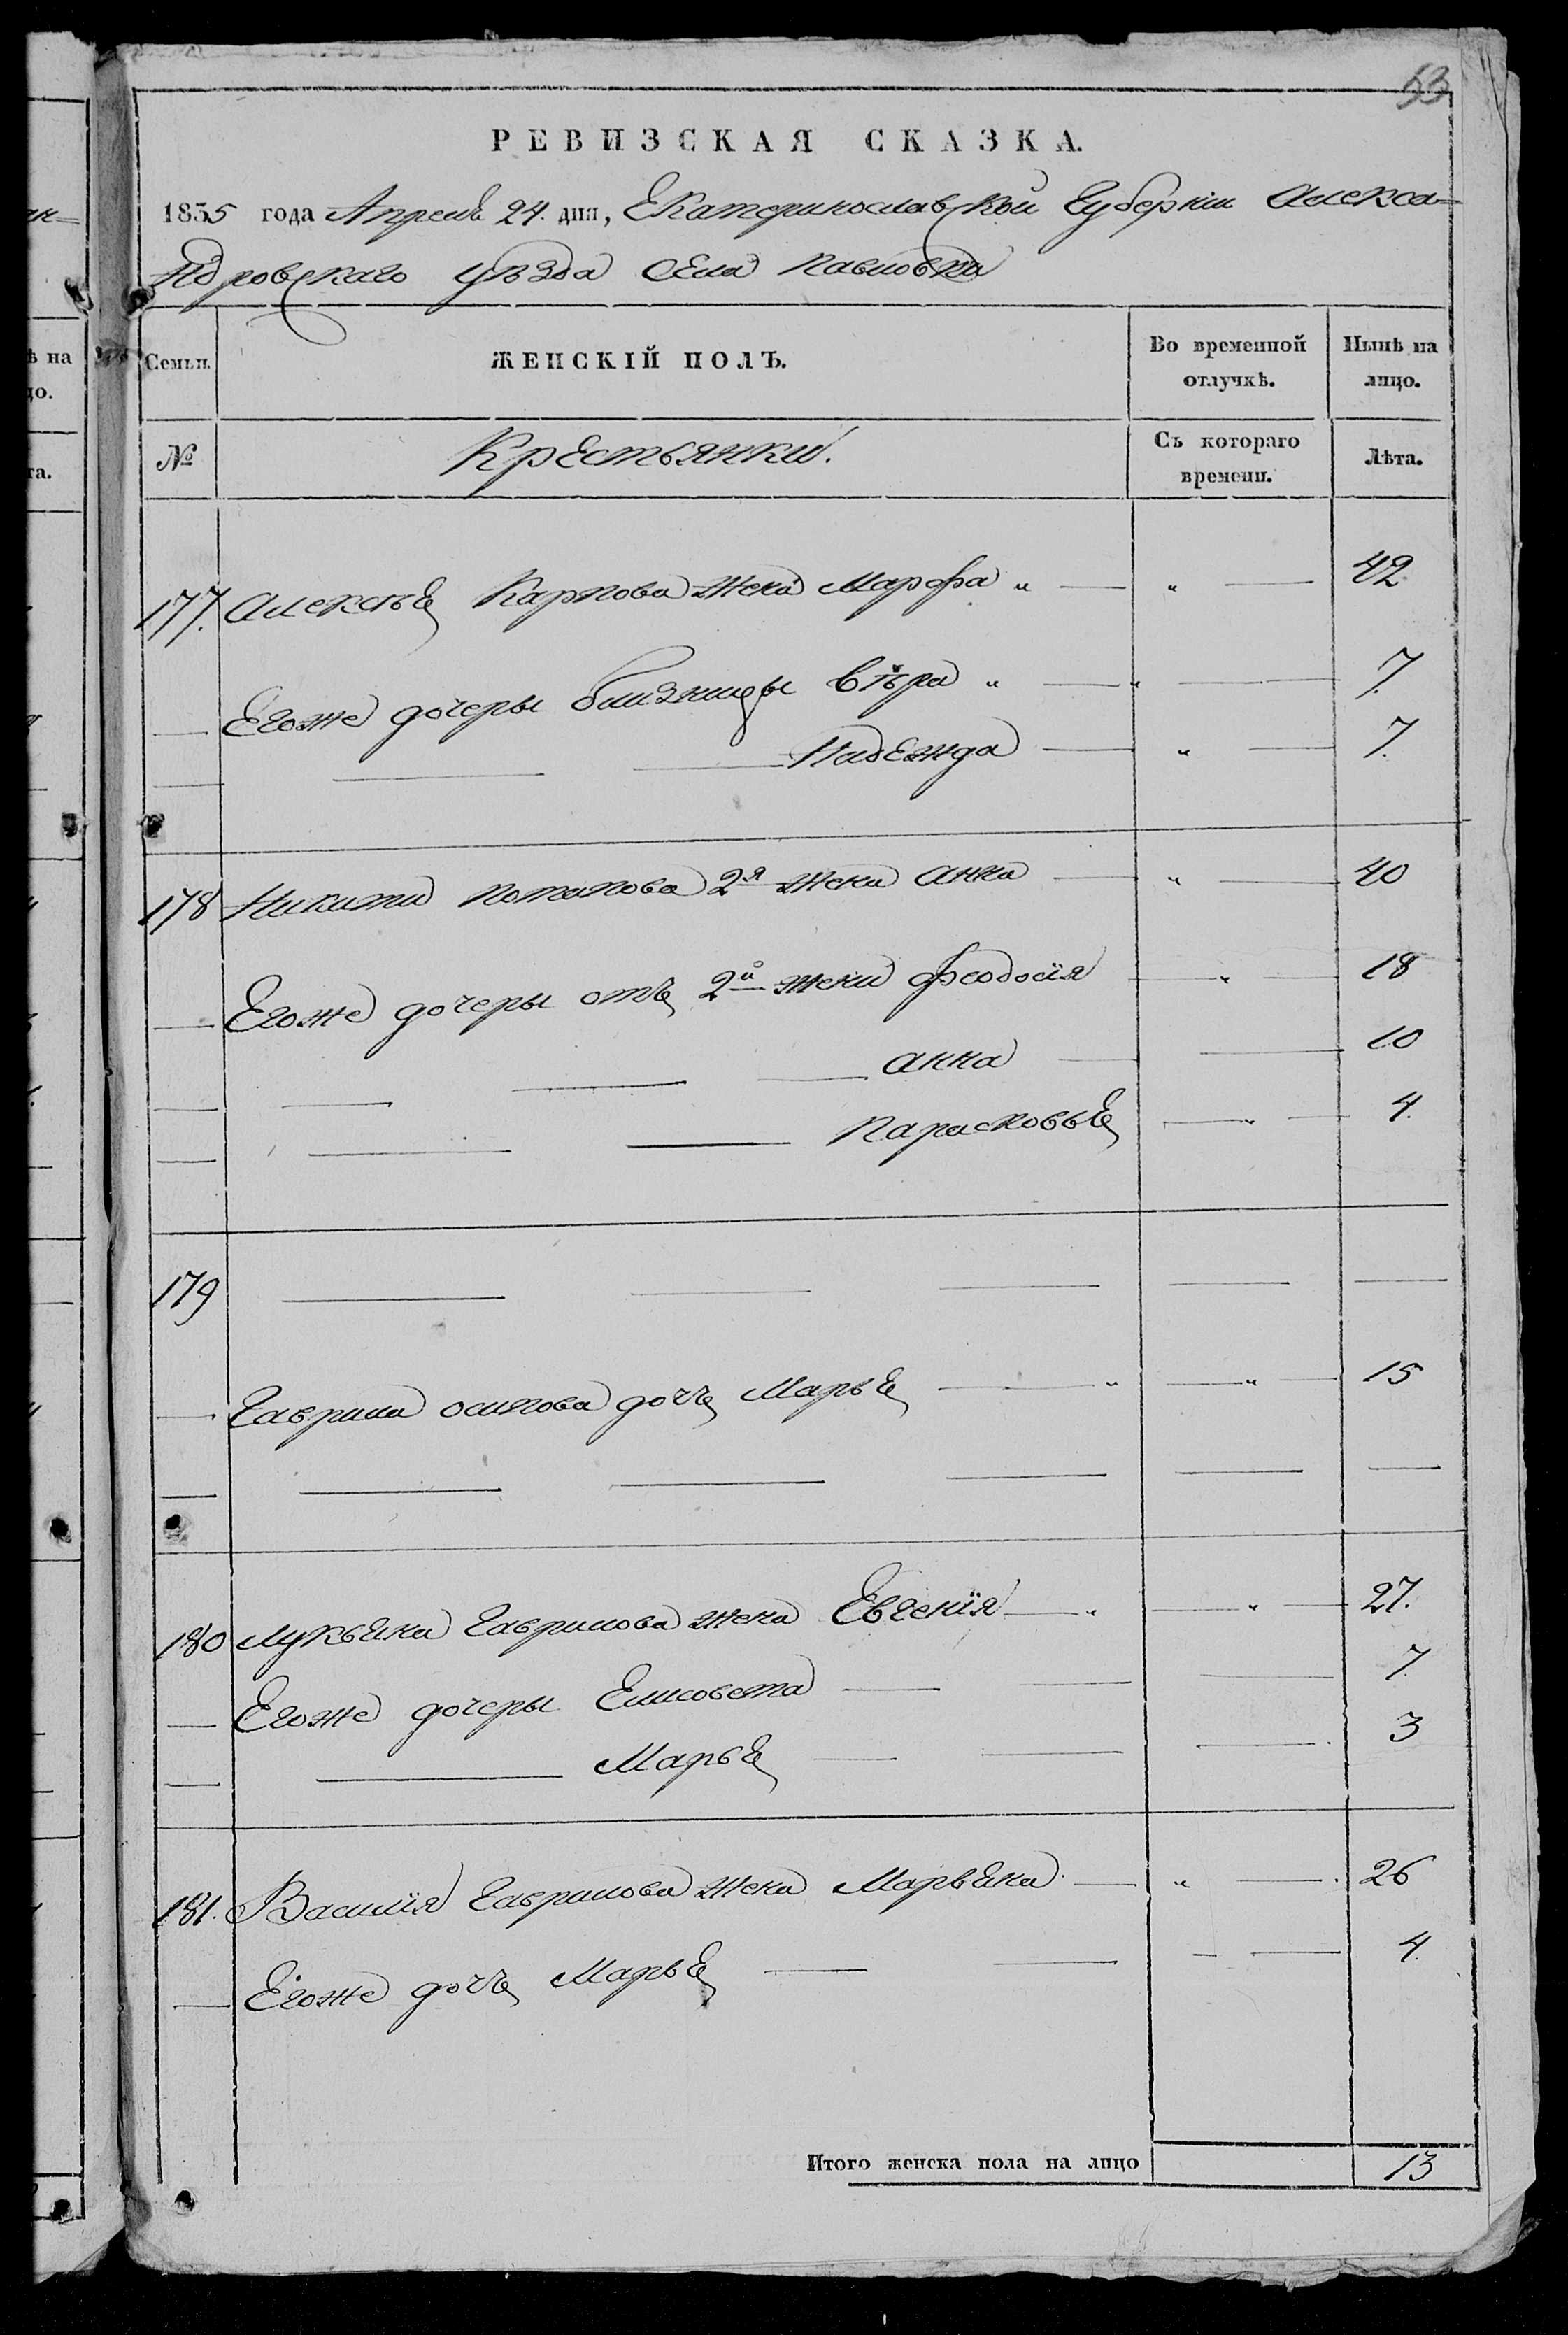 53
РЕВИЗСКАЯ СКАЗКА.
1835 года Апреля 24. дня, Екатеринославской Губернiи Алекса=
ндровскаго уѣзда Села Павловки
Семьи. ЖЕНСКIЙ ПОЛЪ. Во временной отлучкѣ. Нынѣ на лицо.
№ Крестьянки. Съ котораго времени. Лѣта.
177. Алексѣя Карпова жена Марфа " — " — 42
— Егоже дочеры близницы Вѣра " — " — 7.
— — — Надежда — " — 7.
178 Никиты Потапова 2я жена Анна — " — 40
— Егоже дочеры отъ 2й жены Феодосiя — " — 18
— — — — Анна — — 10
— — — Парасковья — " — 4.
179 — — — — —
— Гаврила Осипова дочь Марья — " — " — 15
— — — — — —
180 Лукьяна Гаврилова жена Евгенiя — " — " — 27.
— Егоже дочеры Елисовета — — — 7.
— — Марья — — — 3
181. Василiя Гаврилова жена Марьяна — " — 26
— Егоже дочь Марья — — — — 4.
Итого женска пола на лицо 13
ѣ на
цо.
та.